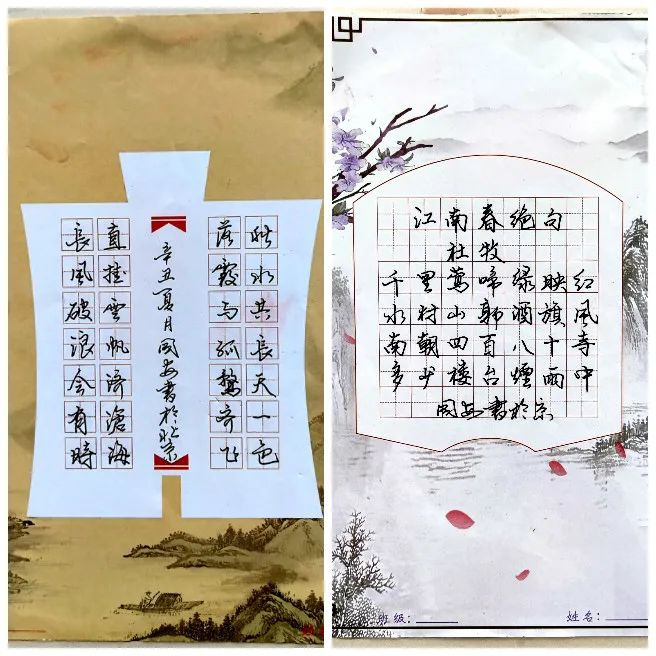 長風破浪会有時
直挂雲帆济滄海
辛丑夏月国安書於北京
落霞与孤鹜齐飞
秋水共長天一色
江南春绝句
杜牧
千里莺啼绿映红
水村山郭酒旗風
南朝四百八十寺
多少楼台煙雨中
国安書於京
班级：
姓名：